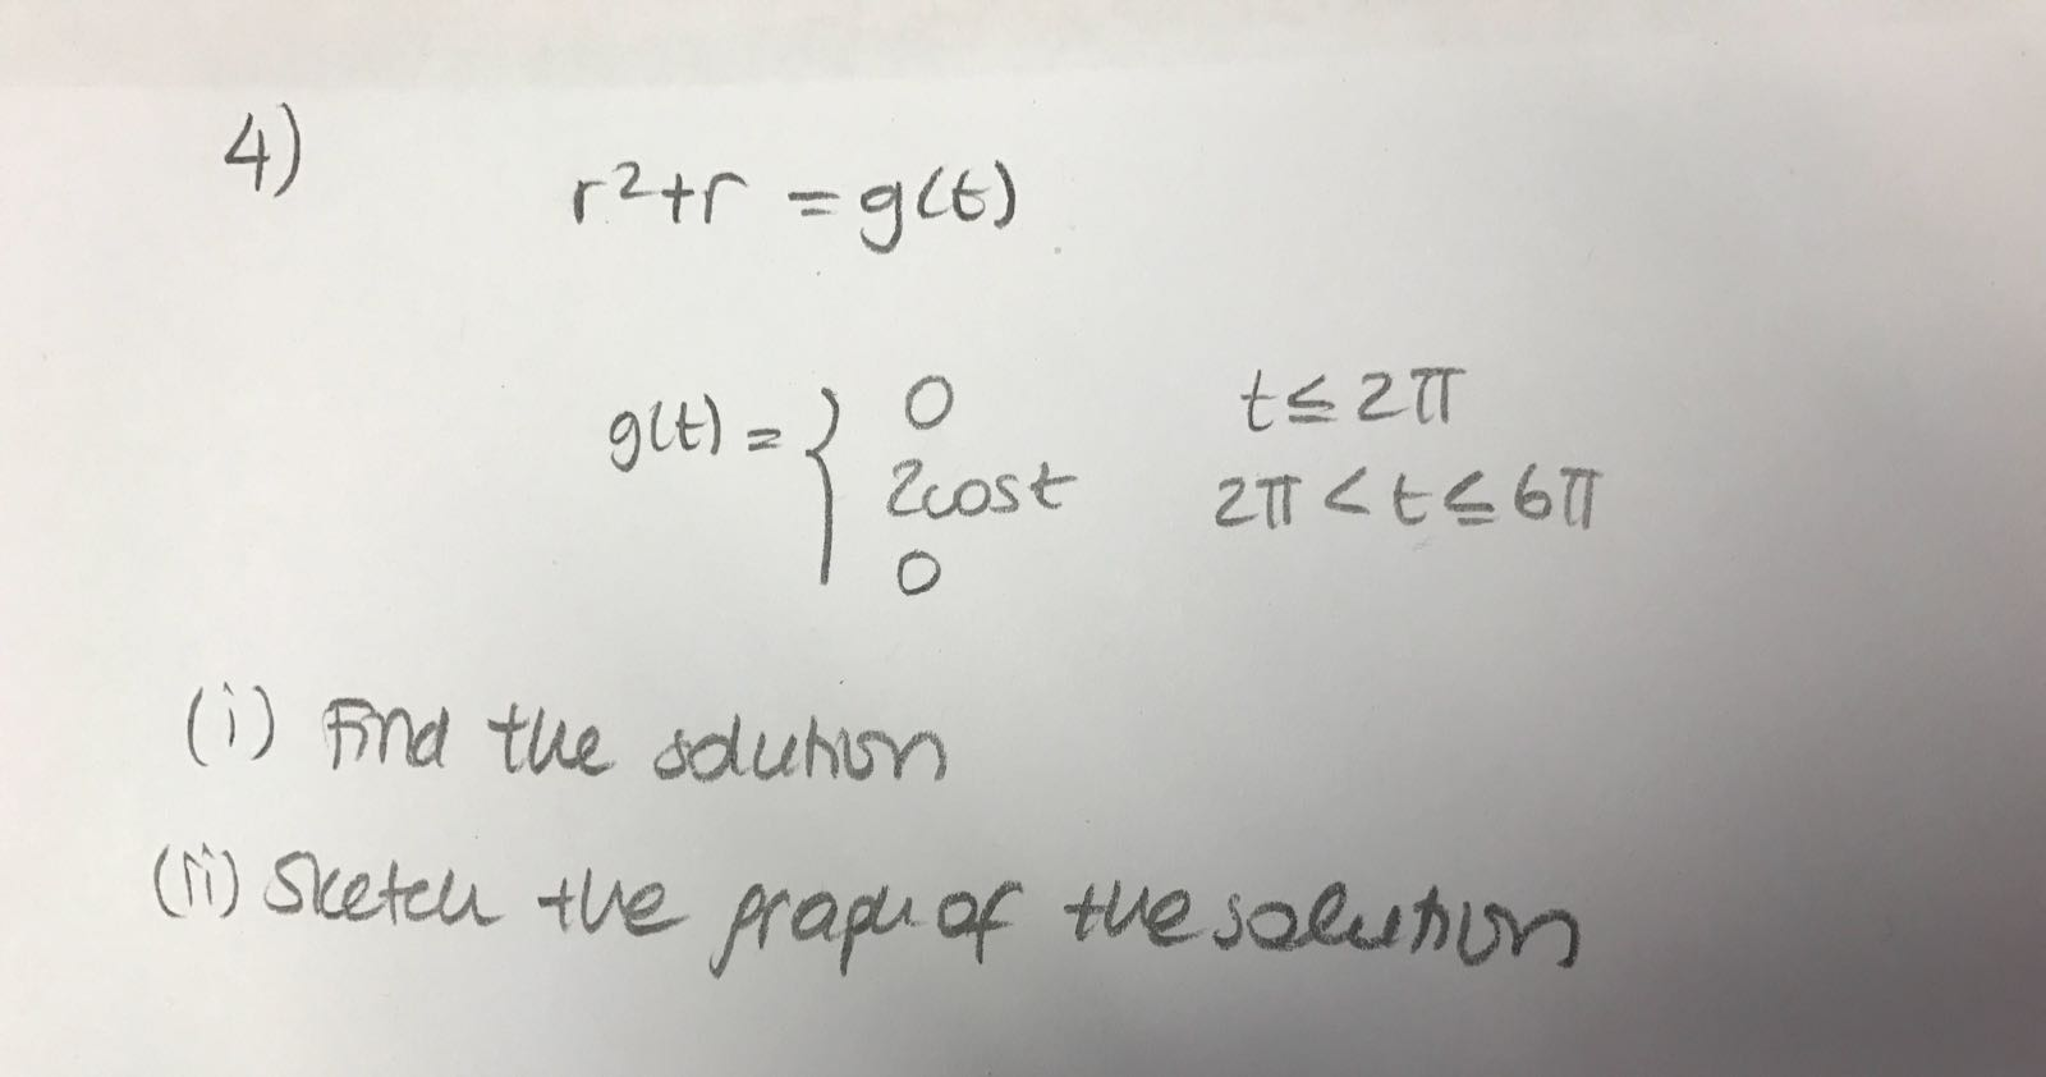 4)
r²+r = g(t)
g(t) = { 0 t ≤ 2π
2cost 2π < t ≤ 6π
0
(i) Find the solution
(ii) Sketch the graph of the solution